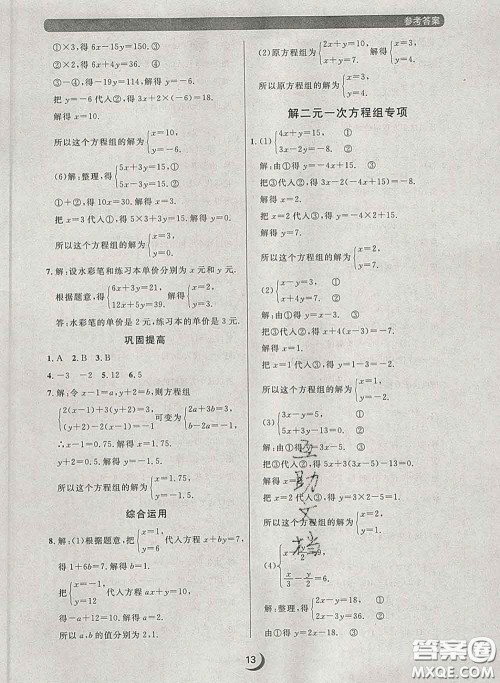 参考答案
①×3,得6x-15y=150. ③
②×2,得6x+4y=36. ④
③-④,得-19y=114.
解得y=-6.
把y=-6代入②,得3x+2×(-6)=18.
解得x=10.
所以这个方程组的解为{x=10, y=-6.
(6)解:整理,得{5x+3y=15, ① 5x-3y=15. ②
①+②,得10x=30. 解得x=3.
把x=3代入①,得5×3+3y=15. 解得y=0.
所以这个方程组的解为{x=3, y=0.
7.解:设水彩笔和练习本单价分别为x元和y元.
根据题意,得{6x+3y=21, 12x+5y=39. 解得{x=2, y=3.
答:水彩笔的单价是2元,练习本的单价是3元.
巩固提高
1.A 2.B 3.B
4.-3 -2 5.12 6.5
7.解:令x-1=a,y+2=b,则方程组
{2(x-1)+3(y+2)=3, (x-1)-2(y+2)=0 可变为{2a+3b=3, a-2b=0.
∴x-1=0.75. 解得x=1.75.
y+2=0.5. 解得y=-1.5.
所以这个方程组的解为{x=1.75, y=-1.5.
综合运用
8.解:(1)根据题意,把{x=6, y=1 代入方程x+by=7,
得1+6b=7. 解得b=1.
把{x=-1, y=12 代入方程ax+y=10,
得-a+12=10. 解得a=2.
所以a,b的值分别为2,1.
(2)原方程组为{2x+y=10, ① x+y=7. ②
所以原方程组的解为{x=3, y=4.
解二元一次方程组专项
1.(1){4x+y=15, ① 3x-2y=-8. ②
解:由①得y=-4x+15. ③
把③代入②,得3x-2(-4x+15)=-8.
解得x=2.
把x=2代入③,得y=-4×2+15.
解得y=7.
所以这个方程组的解为{x=2, y=7.
(2){x-y=3, ① x+4y=-7. ②
解:由①得y=x-3. ③
把③代入②,得x+4(x-3)=-7.
解得x=1.
把x=1代入③,得y=1-3=-2.
所以这个方程组的解为{x=1, y=-2.
(3){3x-y=5, ① 5x+3y-13=0. ②
解:由①得y=3x-5. ③
把③代入②,得5x+3(3x-5)-13=0.
解得x=2.
把x=2代入③,得y=3×2-5=1.
所以这个方程组的解为{x=2, y=1.
互助文档
(4)
x/3-y/2=6.
解:整理,得{2x-y=18, ① 2x-3y=36. ②
由①得y=2x-18. ③
13
答案圈
MXQE.COM